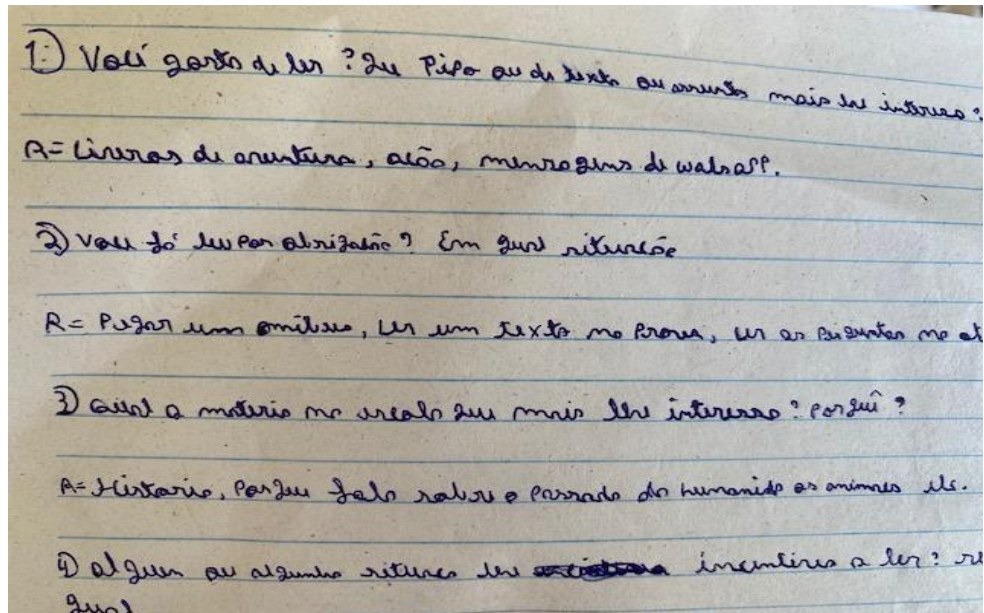 1) Você gosta de ler? Que tipo ou de texto ou assunto mais lhe interesa?
R= Livros de aventura, ação, mensagens de watsapp.
2) Você já leu por obrigação? Em qual situação
R= Pegar um omibus, ler um texto na prova, ler as perguntas na at
3) Qual a materia na escola que mais lhe interessa? porquê?
R= Historia, porque fala sobre o passado da humanida os animes etc.
4) alguem ou alguma lhe incentivou a ler? se
qual